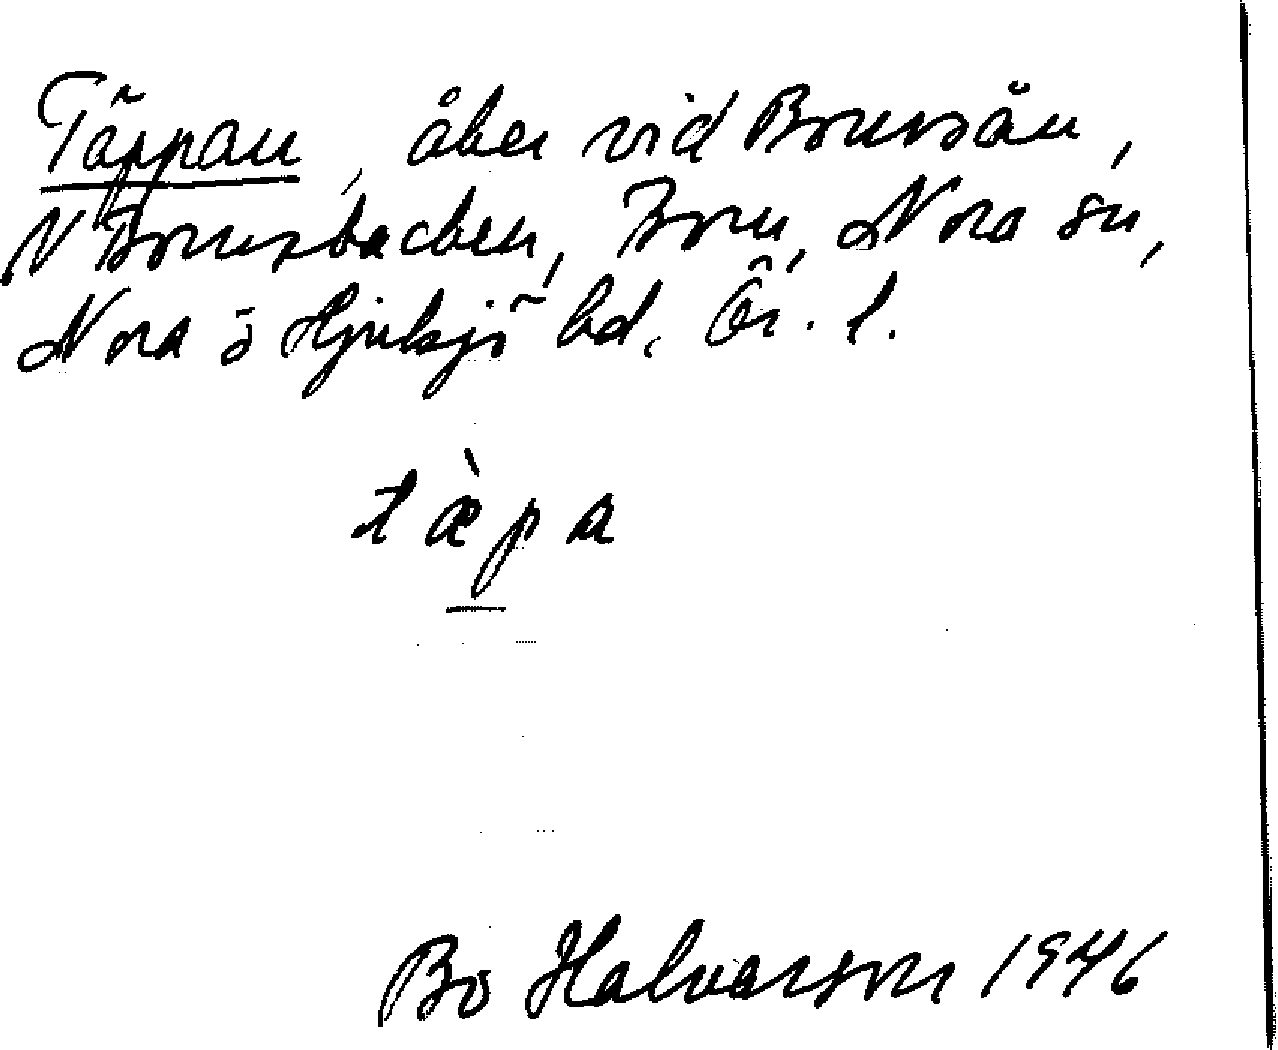 Täppan, åker vid Bornsån,
N Bornsbacken, Born, Nora sn,
Nora o Hjulsjö bd. Ör. l.
tæ̀pa
Bo Halvarson 1946